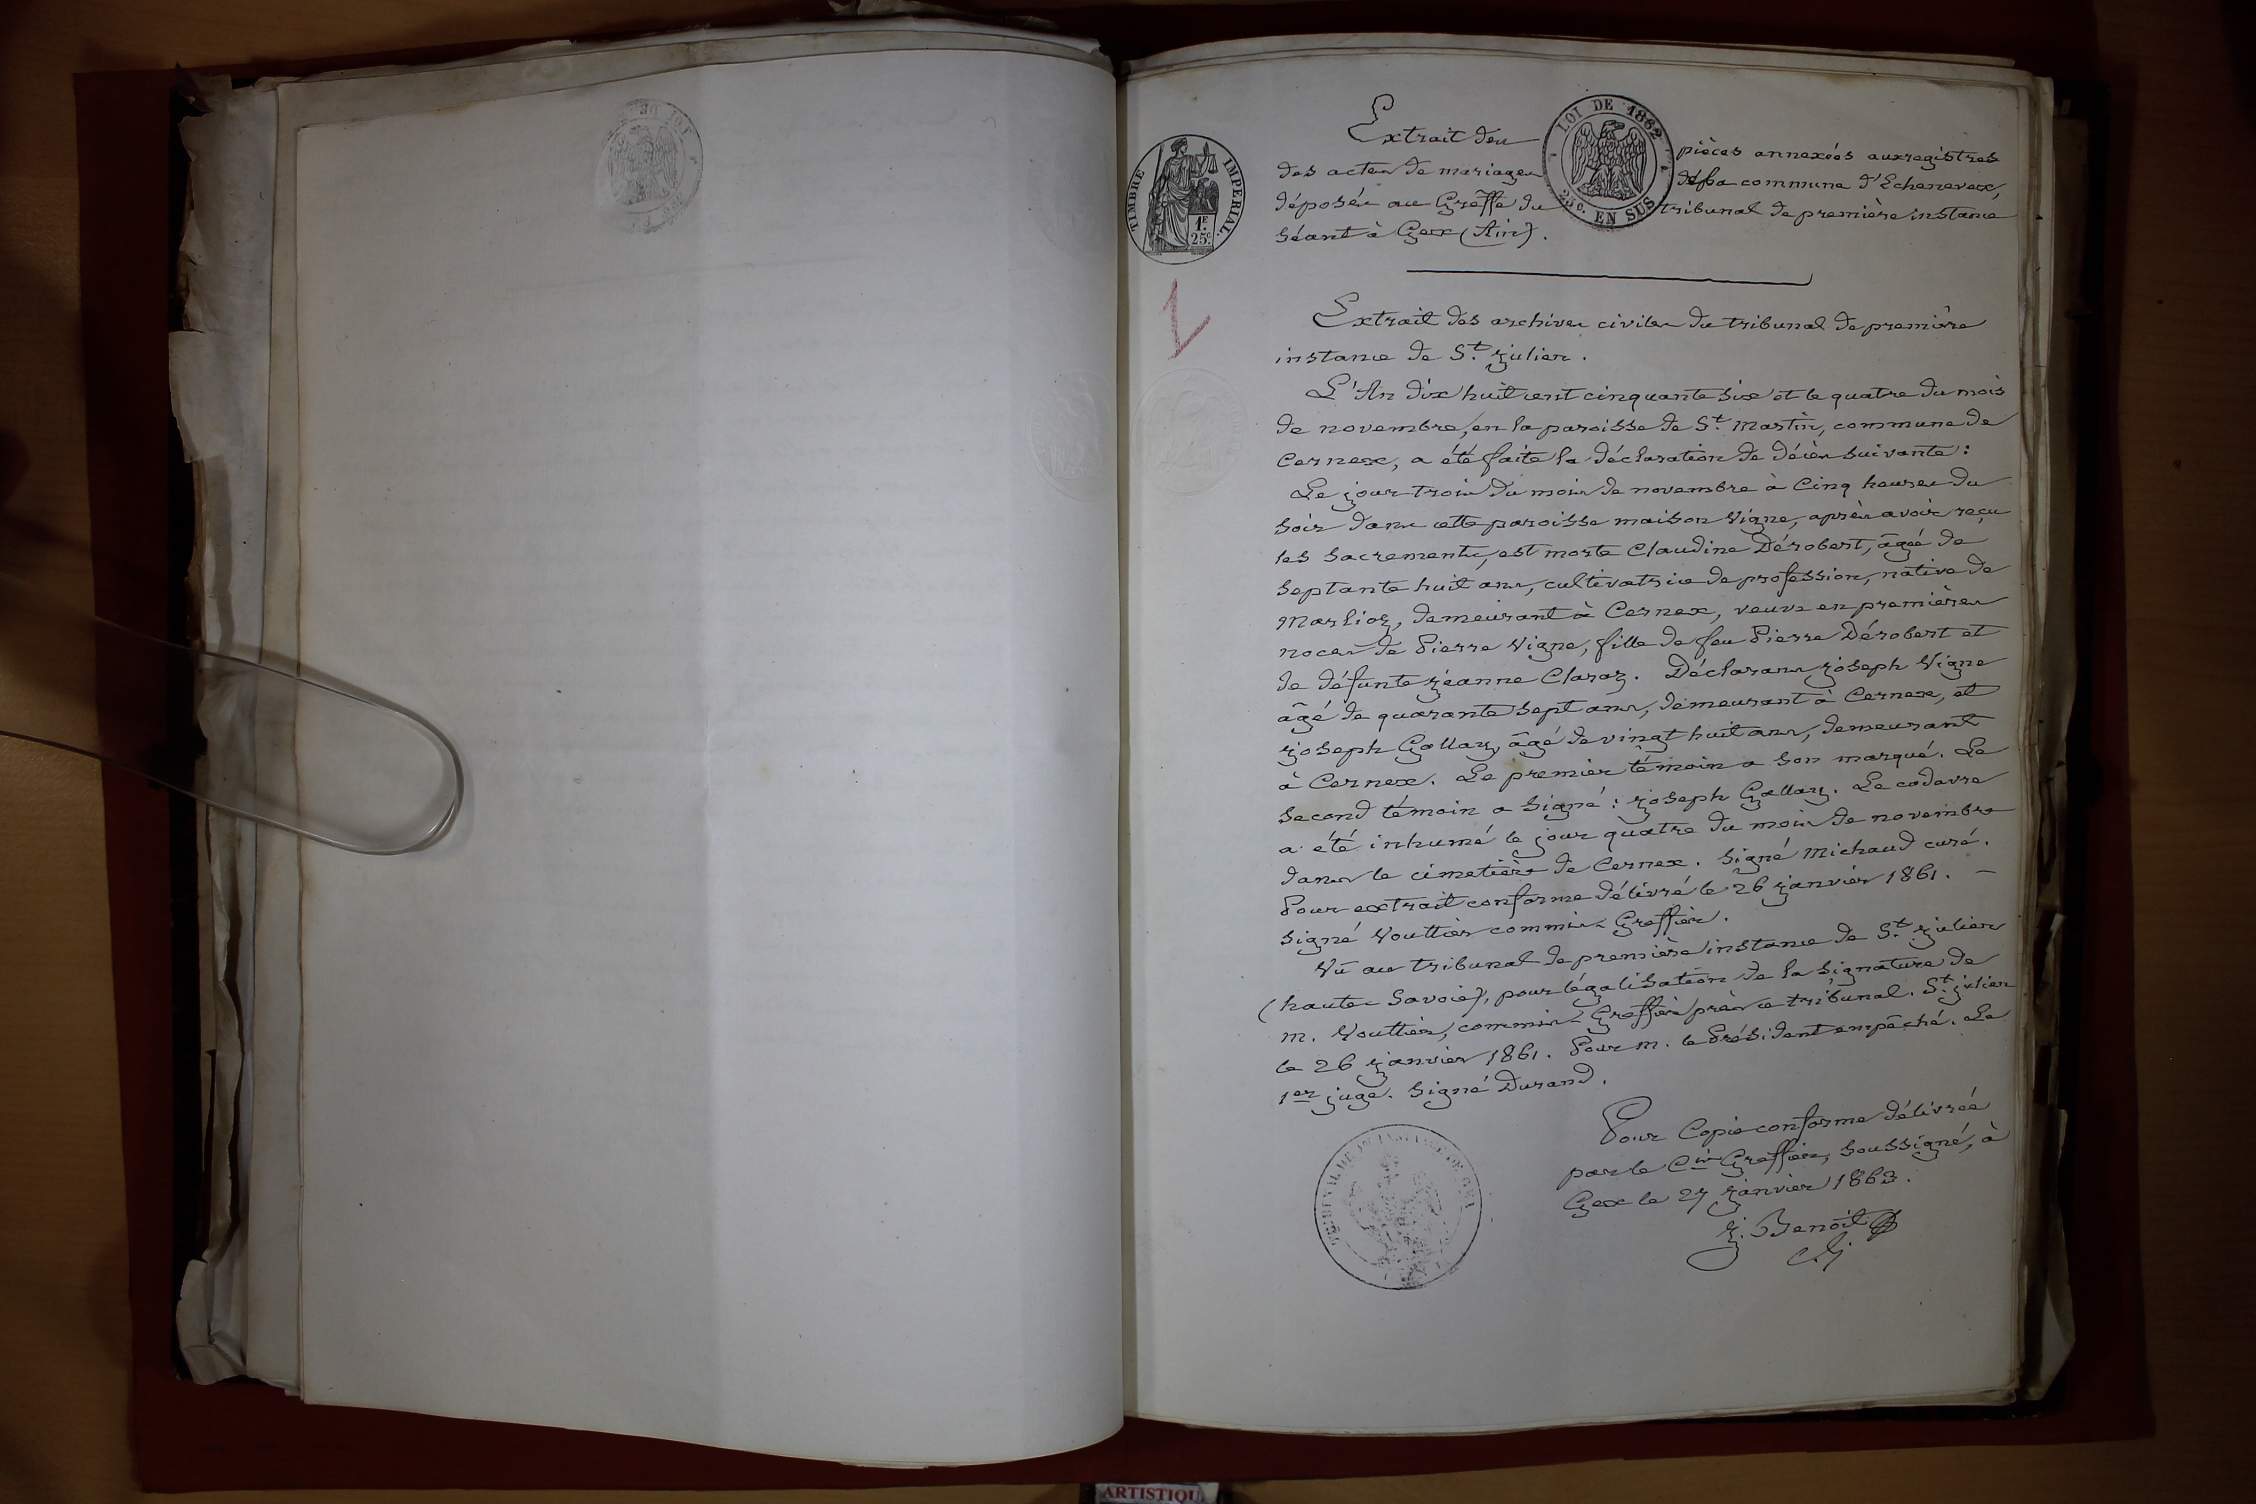 TIMBRE IMPERIAL
1F. 25c.
LOI DE 1862
25c. EN SUS
Extrait des pièces annexées aux registres
des actes de mariages de la commune d'Echenevex,
déposés au Greffe du tribunal de première instance
séant à Gex (Ain).
Extrait des archives civiles du tribunal de première
instance de St. Julien.
L'An dix huit cent cinquante six et le quatre du mois
de novembre, en la paroisse de St. Martin, commune de
Cernex, a été faite la déclaration de décès suivante :
Le jour trois du mois de novembre à Cinq heures du
soir dans cette paroisse maison Vigne, après avoir reçu
les sacrements, est morte Claudine Dérobert, âgée de
septante huit ans, cultivatrice de profession, native de
Marlioz, demeurant à Cernex, veuve en premières
noces de Pierre Vigne, fille de feu Pierre Dérobert et
de défunte Jeanne Claraz. Déclarans Joseph Vigne
âgé de quarante sept ans, demeurant à Cernex, et
Joseph Gallay, âgé de vingt huit ans, demeurant
à Cernex. Le premier témoin a son marqué. Le
second témoin a signé : Joseph Gallay. Le cadavre
a été inhumé le jour quatre du mois de novembre
dans le cimetière de Cernex. Signé Michaud curé.
Pour extrait conforme délivré le 26 janvier 1861. —
Signé Vouttier commis Greffier.
Vu au tribunal de première instance de St. Julien
(haute Savoie), pour légalisation de la signature de
M. Vouttier, commis Greffier près ce tribunal. St. Julien
le 26 janvier 1861. Pour M. le Président empêché. Le
1er juge. Signé Durand.
Pour Copie conforme délivrée
par le Cis Greffier, soussigné, à
Gex le 27 janvier 1863.
J. Benoît
ARTISTIQU